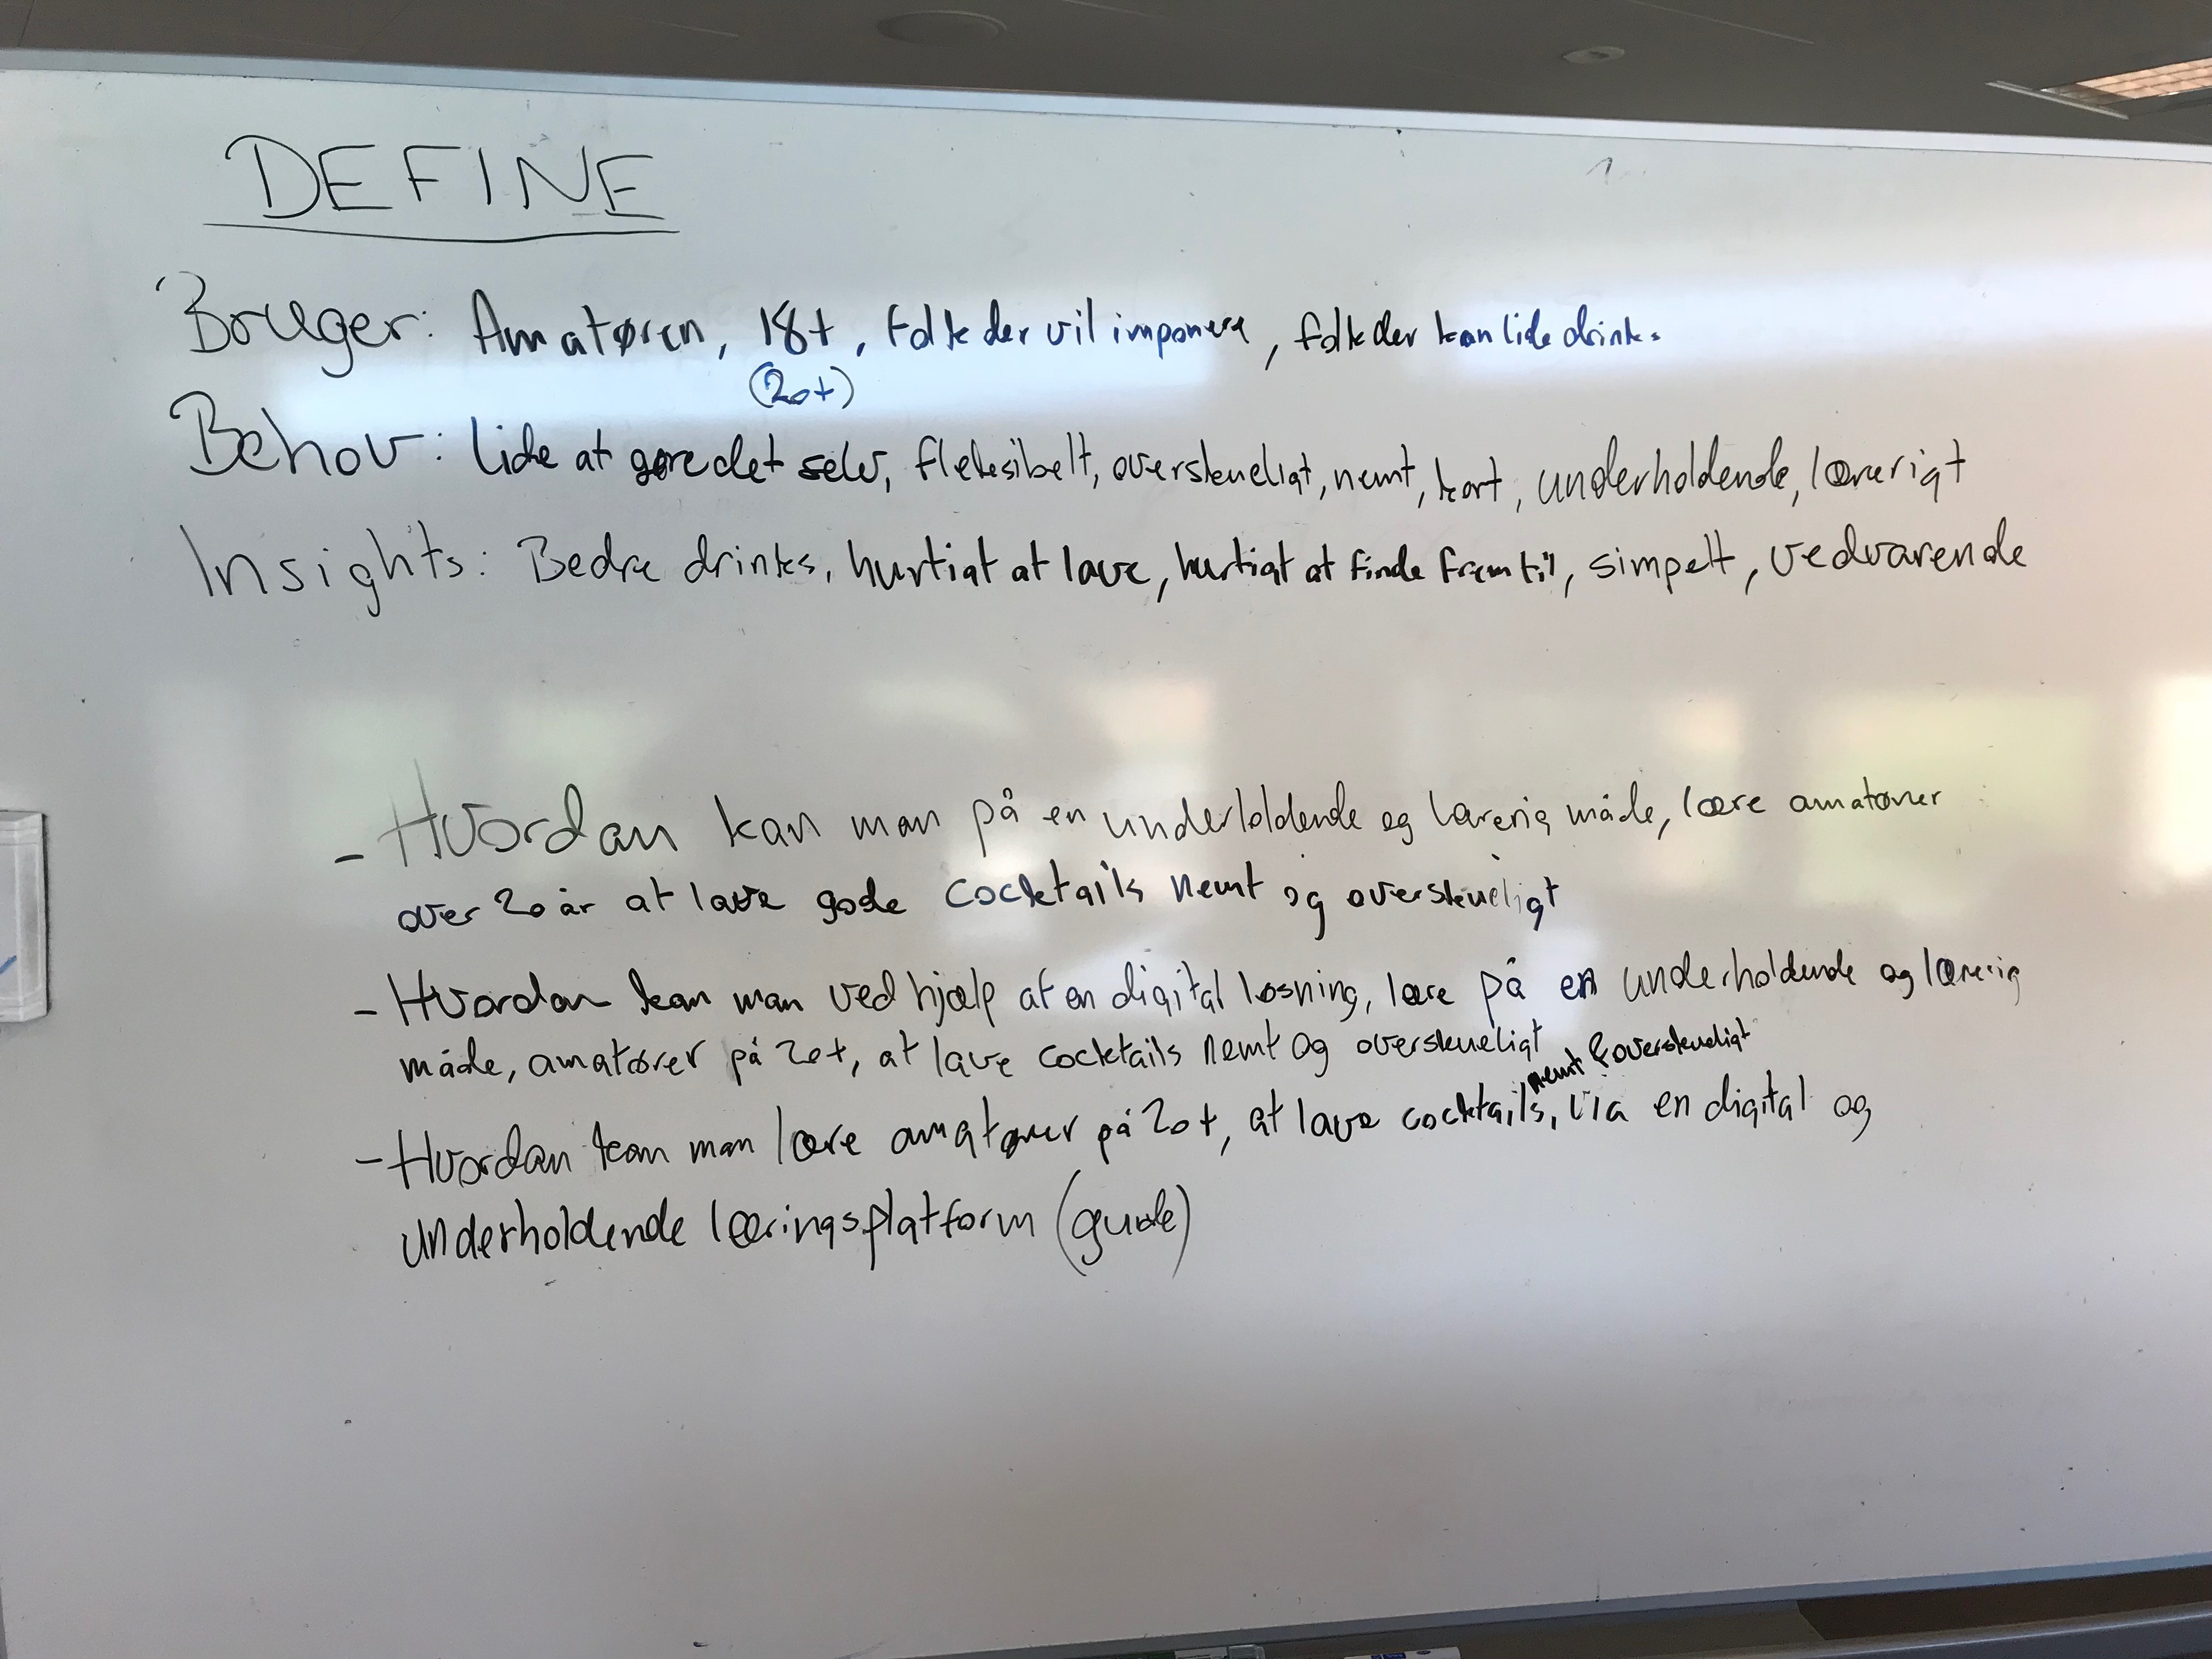 DEFINE
Bruger: Amatøren, 18+, folk der vil imponere, folk der kan lide drinks
(20+)
Behov: Lide at gøre det selv, fleksibelt, overskueligt, nemt, kort, underholdende, lærerigt
Insights: Bedre drinks, hurtigt at lave, hurtigt at finde frem til, simpelt, vedvarende
- Hvordan kan man på en underholdende og lærerig måde, lære amatører
over 20 år at lave gode cocktails nemt og overskueligt
- Hvordan kan man ved hjælp af en digital løsning, lære på en underholdende og lærerig
måde, amatører på 20+, at lave cocktails nemt og overskueligt
nemt & overskueligt
- Hvordan kan man lære amatører på 20+, at lave cocktails, via en digital og
underholdende læringsplatform (guide)